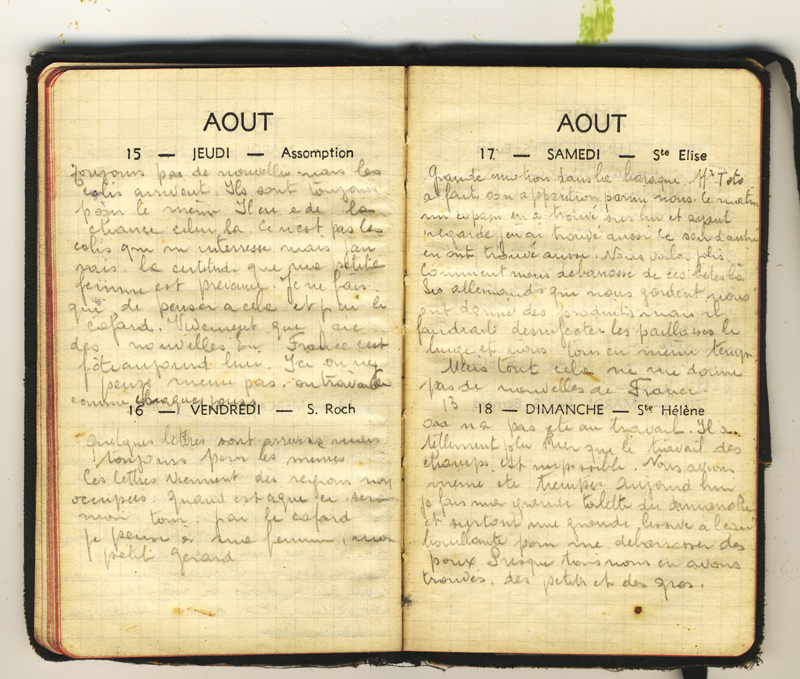 AOUT
15 — JEUDI — Assomption
Toujours pas de nouvelles mais les
colis arrivent. Ils sont toujours
pour le meme Il en a de la
chance celui la. Ce n'est pas les
colis qui m interresse mais j'au
rais la certitude que ma petite
femme est prevenue. Je ne fais
que de penser a cela et j'ai le
cafard. Vivement que j'aie
des nouvelles. En France c'est
fête aujourd hui. Ici on n'y
pense meme pas. on travaille
comme chaques jours
16 — VENDREDI — S. Roch
Quelques lettres sont arrivees mais
toujours pour les memes
Ces lettres viennent des regions non
occupees. Quand est a que ce sera
mon tour. j'ai le cafard
je pense a ma femme, mon
petit Gerard
AOUT
17 — SAMEDI — Ste Elise
Grande emotion dans la baraque. Mr Toto
a fait son apparition parmi nous. ce matin
un copain en a trouvé sur lui et ayant
regarde j'en ai trouvé aussi Ce soir d'autre
en ont trouvé aussi. Nous voila jolis
Comment nous debarasse de ces betes là
Les allemands qui nous gardent nous
ont donné des produits mais il
faudrait desinfecter les paillasses le
linge et nous tous en même temps.
Mais tout cela ne me donne
pas de nouvelles de France
13
18 — DIMANCHE — Ste Hélène
on n a pas ete au travail. Il a
tellement plu hier que le travail des
champs est impossible. Nous avons
meme ete trempes. Aujourd hui
je fais ma grande toilette du dimanche
et surtout une grande lessive a l'eau
bouillante pour me debarrasser des
poux. Presque tous nous en avons
trouvés, des petits et des gros.